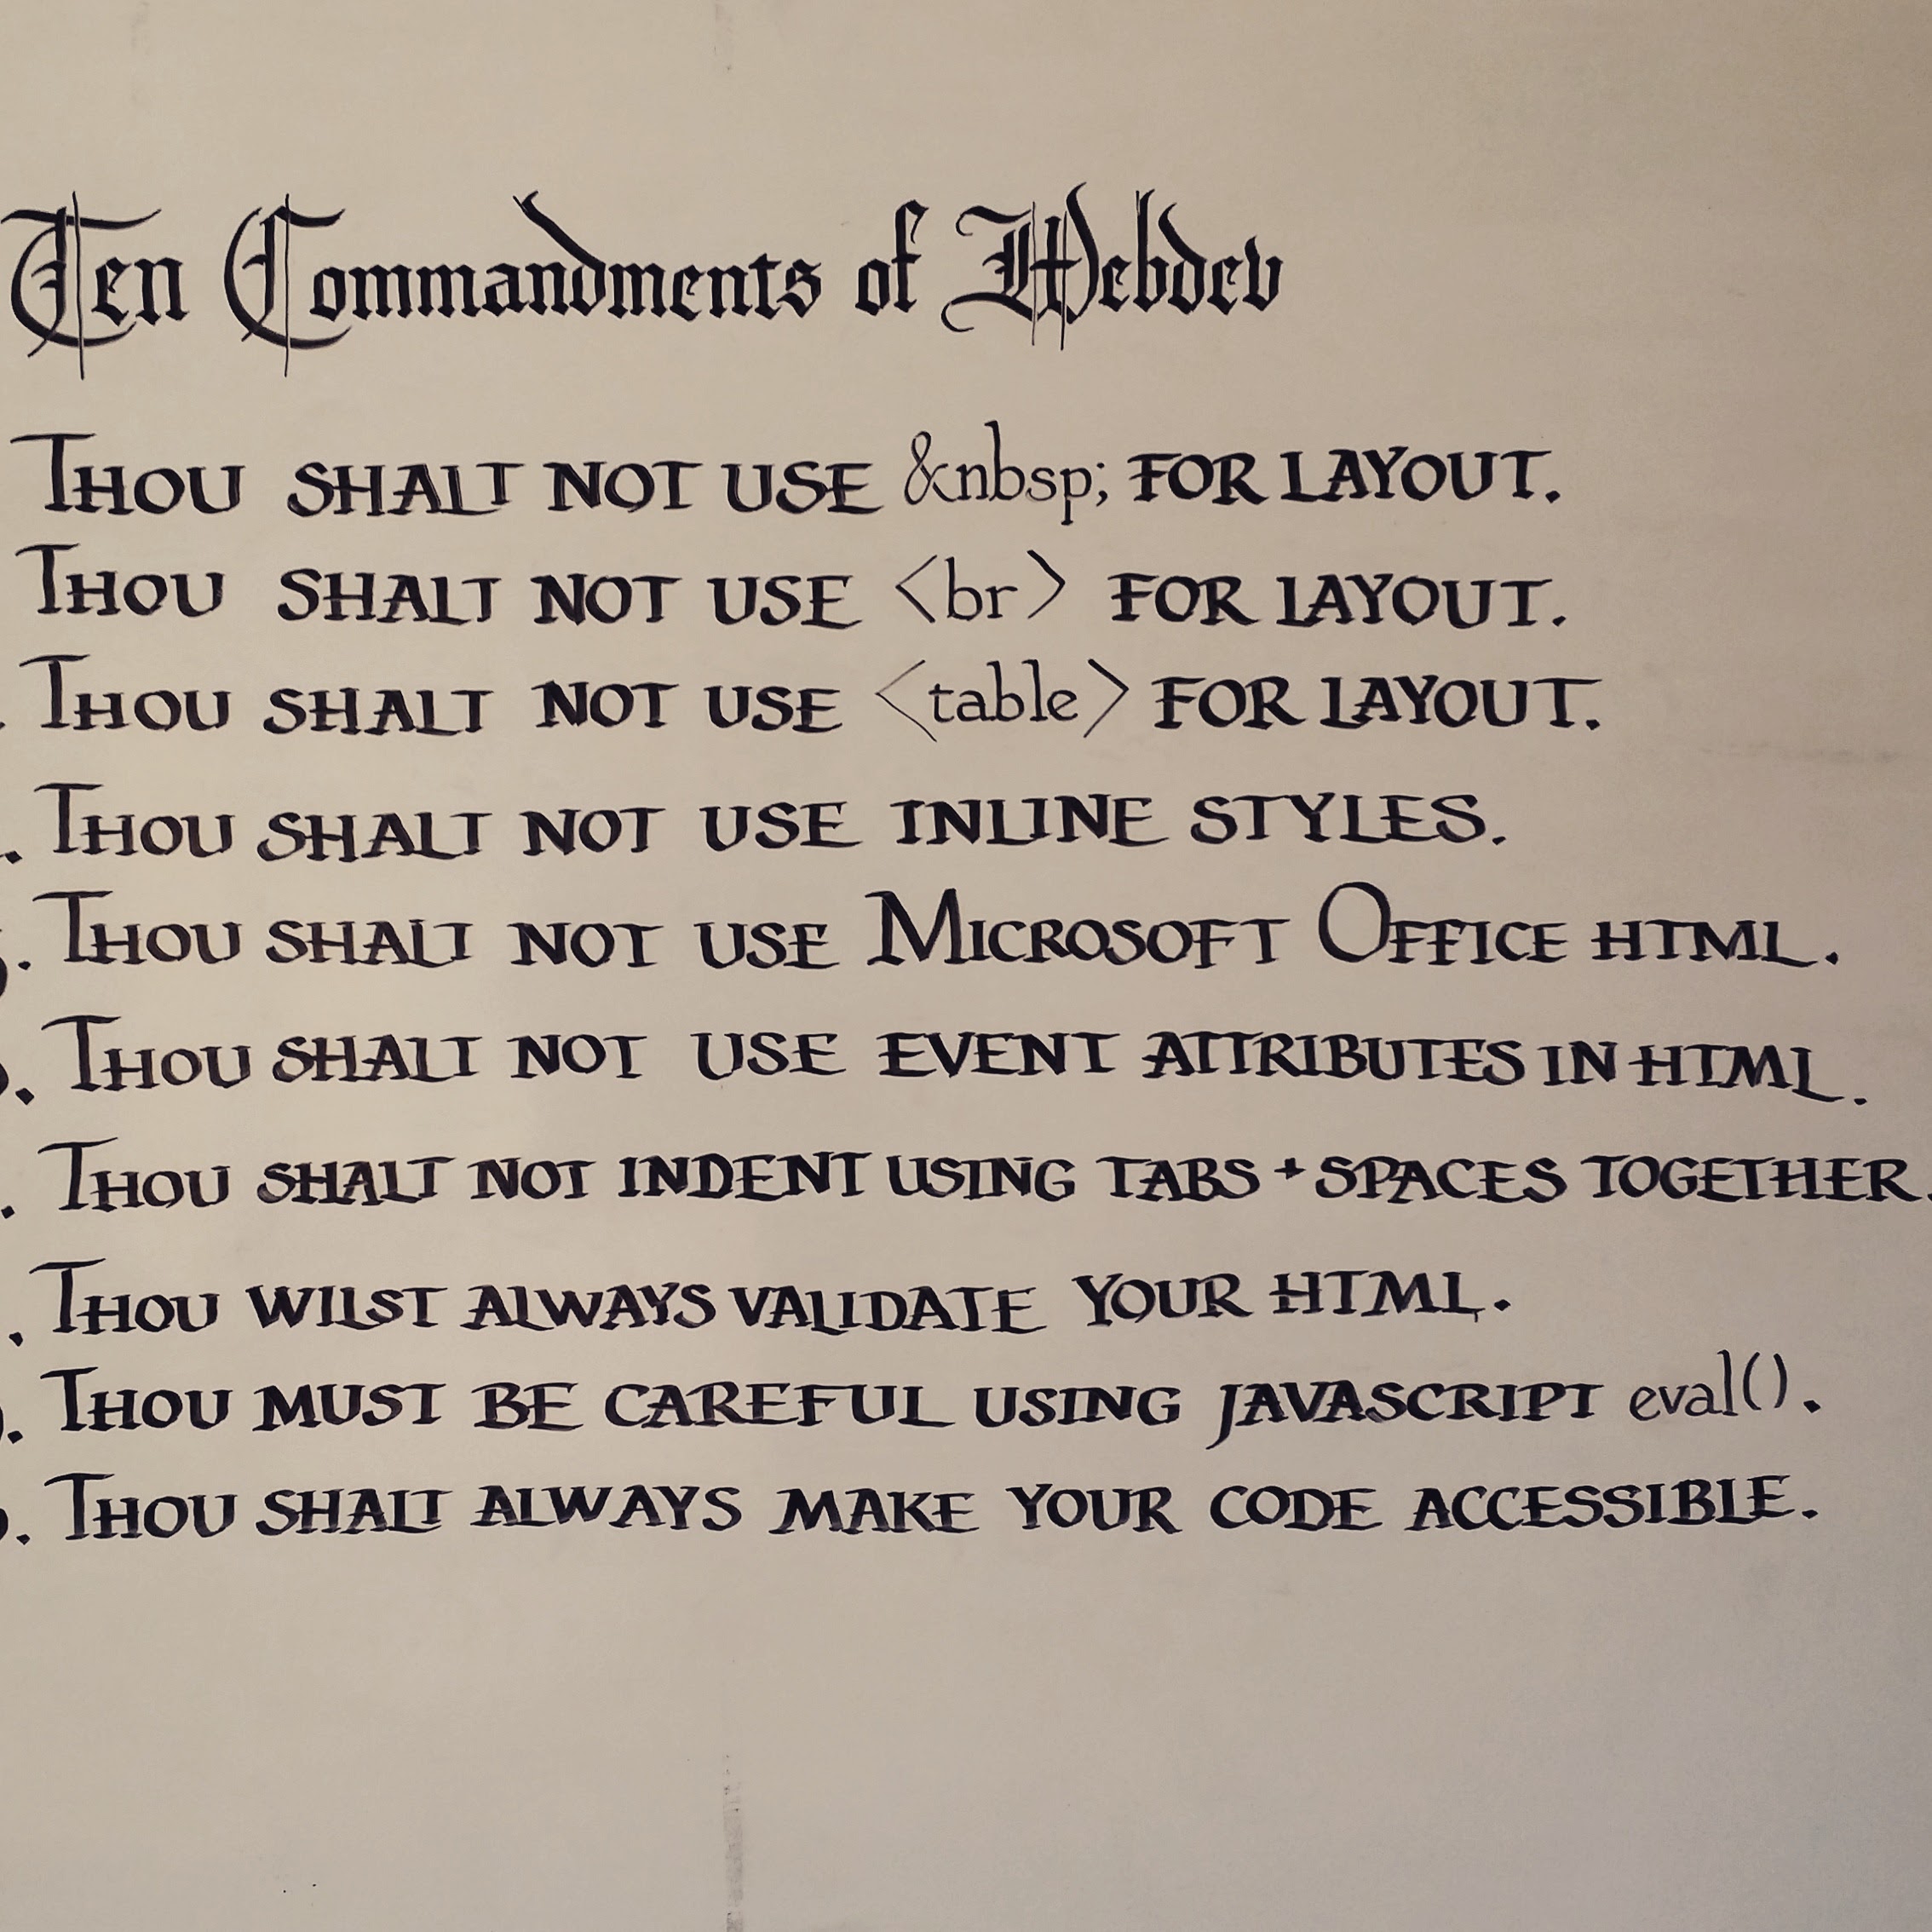 Ten Commandments of Webdev
Thou shalt not use &nbsp; for layout.
Thou shalt not use <br> for layout.
. Thou shalt not use <table> for layout.
. Thou shalt not use inline styles.
. Thou shalt not use Microsoft Office HTML.
. Thou shalt not use event attributes in HTML.
. Thou shalt not indent using tabs + spaces together.
. Thou wilst always validate your HTML.
. Thou must be careful using JavaScript eval().
. Thou shalt always make your code accessible.